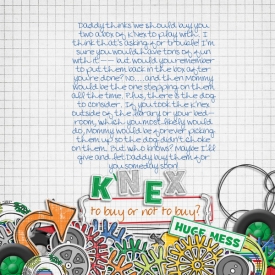 Daddy thinks we should buy you
two a box of K'Nex to play with. I
think that's asking for trouble! I'm
sure you would have tons of fun
with it---- but would you remember
to put them back in the box after
you're done? No....and then Mommy
would be the one stepping on them
all the time. Plus, there is the dog
to consider. If you took the K'nex
outside of the library or your bed-
room, which you most likely would
do, Mommy would be forever picking
them up so the dog didn't choke
on them. But who knows? Maybe I'll
give and let Daddy buy them for
you someday soon!
KNEX
to buy or not to buy?
HUGE MESS